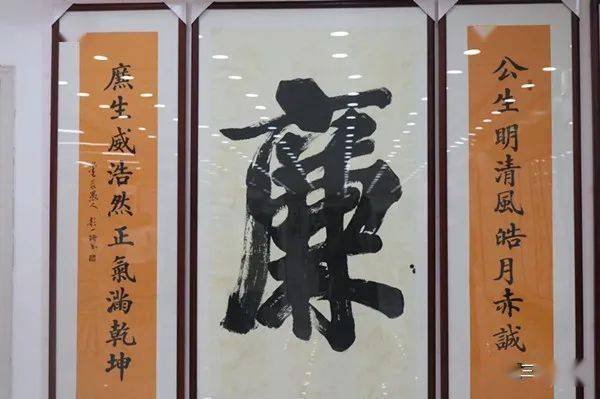 公生明清風皓月赤誠
廉
廉生威浩然正氣滿乾坤